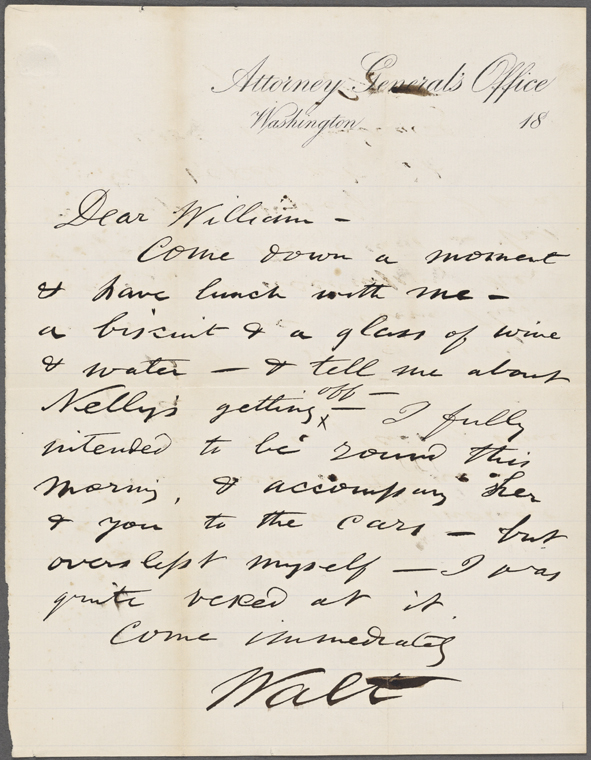 Attorney General's Office
Washington 18
Dear William -
Come down a moment
& have lunch with me -
a biscuit & a glass of wine
& water - & tell me about
off -
Nelly's getting x - I fully
intended to be 'round this
morning, & accompany her
& you to the cars - but
overslept myself - I was
quite vexed at it.
Come immediately
Walt